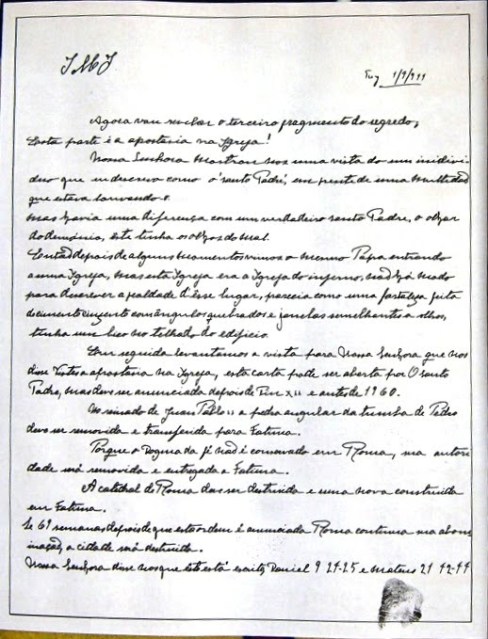 JMJ
Tuy 1/9/1944
Agora vou revelar o terceiro fragmento do segredo;
Esta parte é a apostasia na Igreja!
Nossa Senhora mostrou nos uma vista do um individ
duo que eu descrevo como o 'santo Padre', em frente de uma multidao
que estava louvando-o.
Mas havia uma diferença com um verdadeiro santo Padre, o olhar
do demónio, este tinha os olhos do mal.
Entao depois de alguns momentos vimos o mesmo Papa entrando
a uma Igreja, mas esta Igreja era a Igreja do inferno, nao há modo
para descrever a fealdade d'ese lugar, parecia como uma fortaleza feita
de cimento cinzento com angulos quebrados e janelas semelhantes a olhos,
tinha um bico no telhado do edificio.
Em seguida levantamos a vista para Nossa Senhora que nos
disse Vistes a apostasia na Igreja, esta carta pode ser aberta por O santo
Padre, mas deve ser anunciada depois de Pio XII e antes de 1960.
No reinado de Juan Pablo II a pedra angular da tumba de Pedro
deve ser removida e transferida para Fatima.
Porque o dogma da fé nao é conservado em Roma, sua autori
dade será removida e entregada a Fatima.
A catedral de Roma deve ser destruida e uma nova construida
em Fatima.
Se 69 semanas depois de que esta ordem é anunciada Roma continua sua abom
inaçao, a cidade será destruida.
Nossa Senhora disse nos que isto está escrito, Daniel 9 24-25 e Mateus 21 42-44